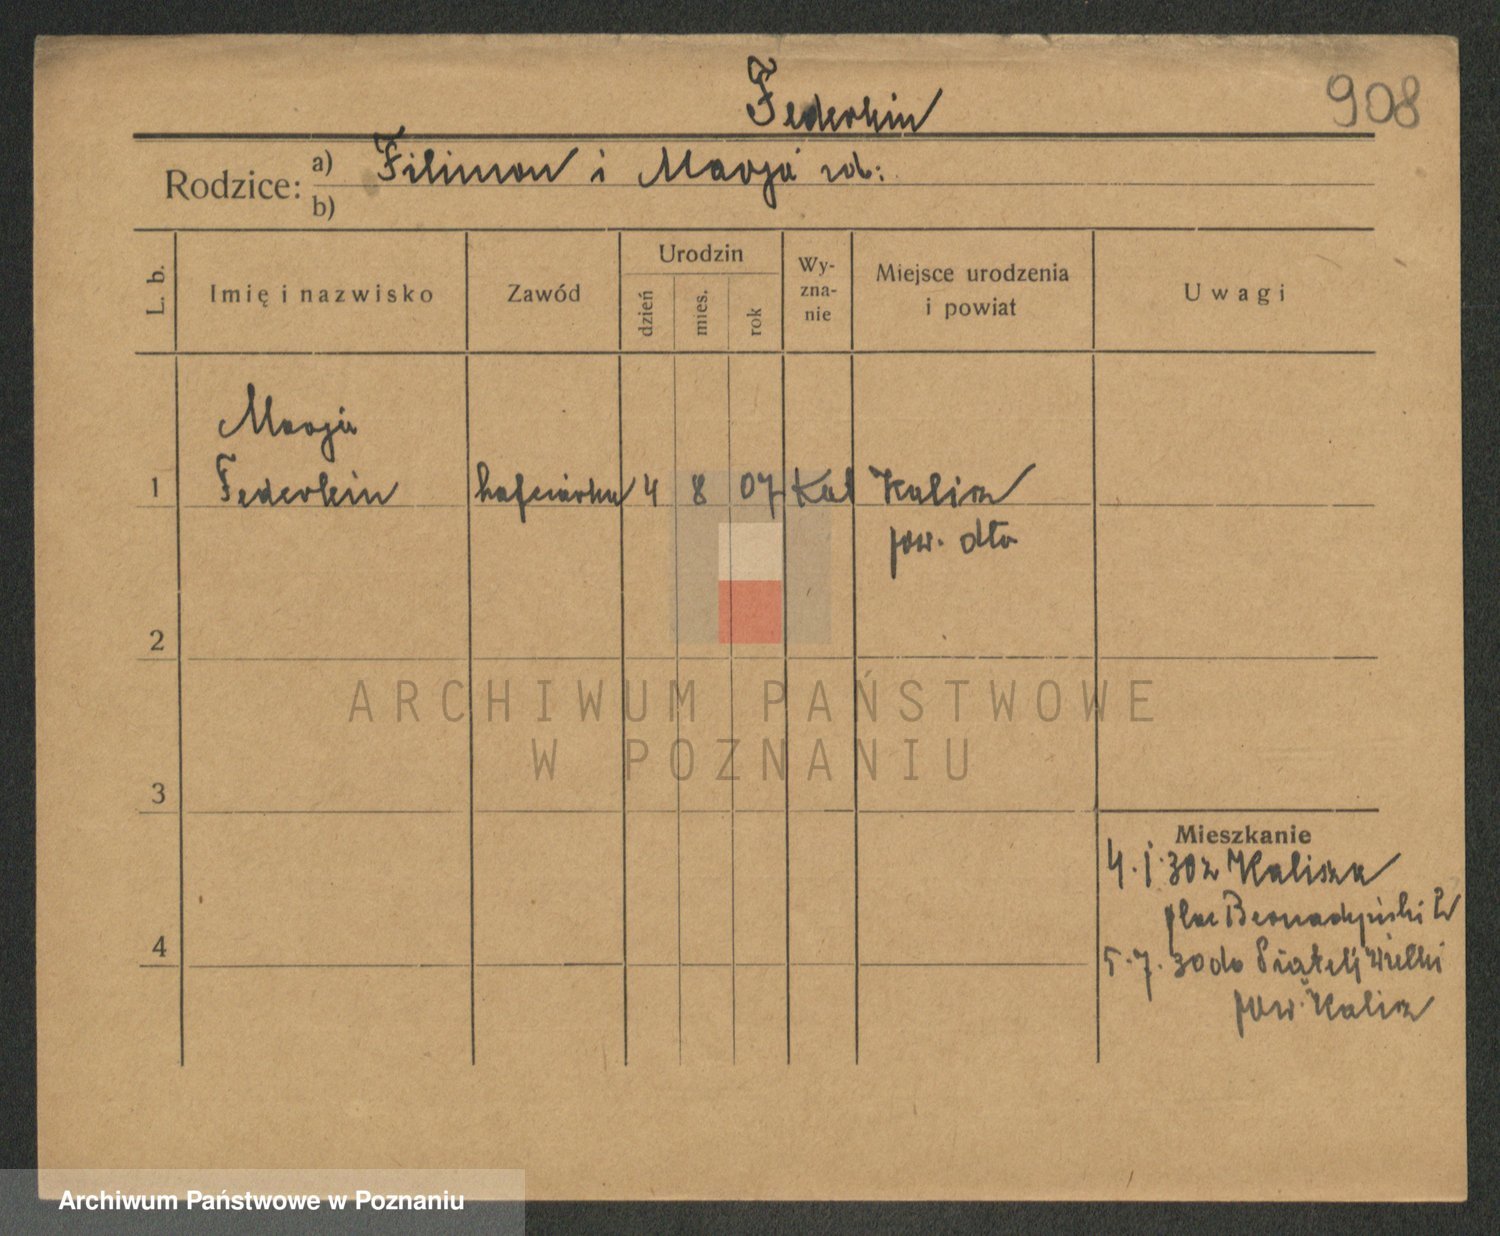 Federkin
908
Rodzice: a) Filimon i Marja rd:
b)
L. b.
Imię i nazwisko
Zawód
Urodzin
dzień
mies.
rok
Wy-
zna-
nie
Miejsce urodzenia
i powiat
Uwagi
Marja
1 Federkin hafciarka 4 8 07 Kat Kalisz
pow. dto
2
3
4
ARCHIWUM PAŃSTWOWE
W POZNANIU
Mieszkanie
4. 1. 30 z Kalisza
plac Bernadyński
5. 7. 30 do Piątek Wielki
pow. Kalisz
Archiwum Państwowe w Poznaniu